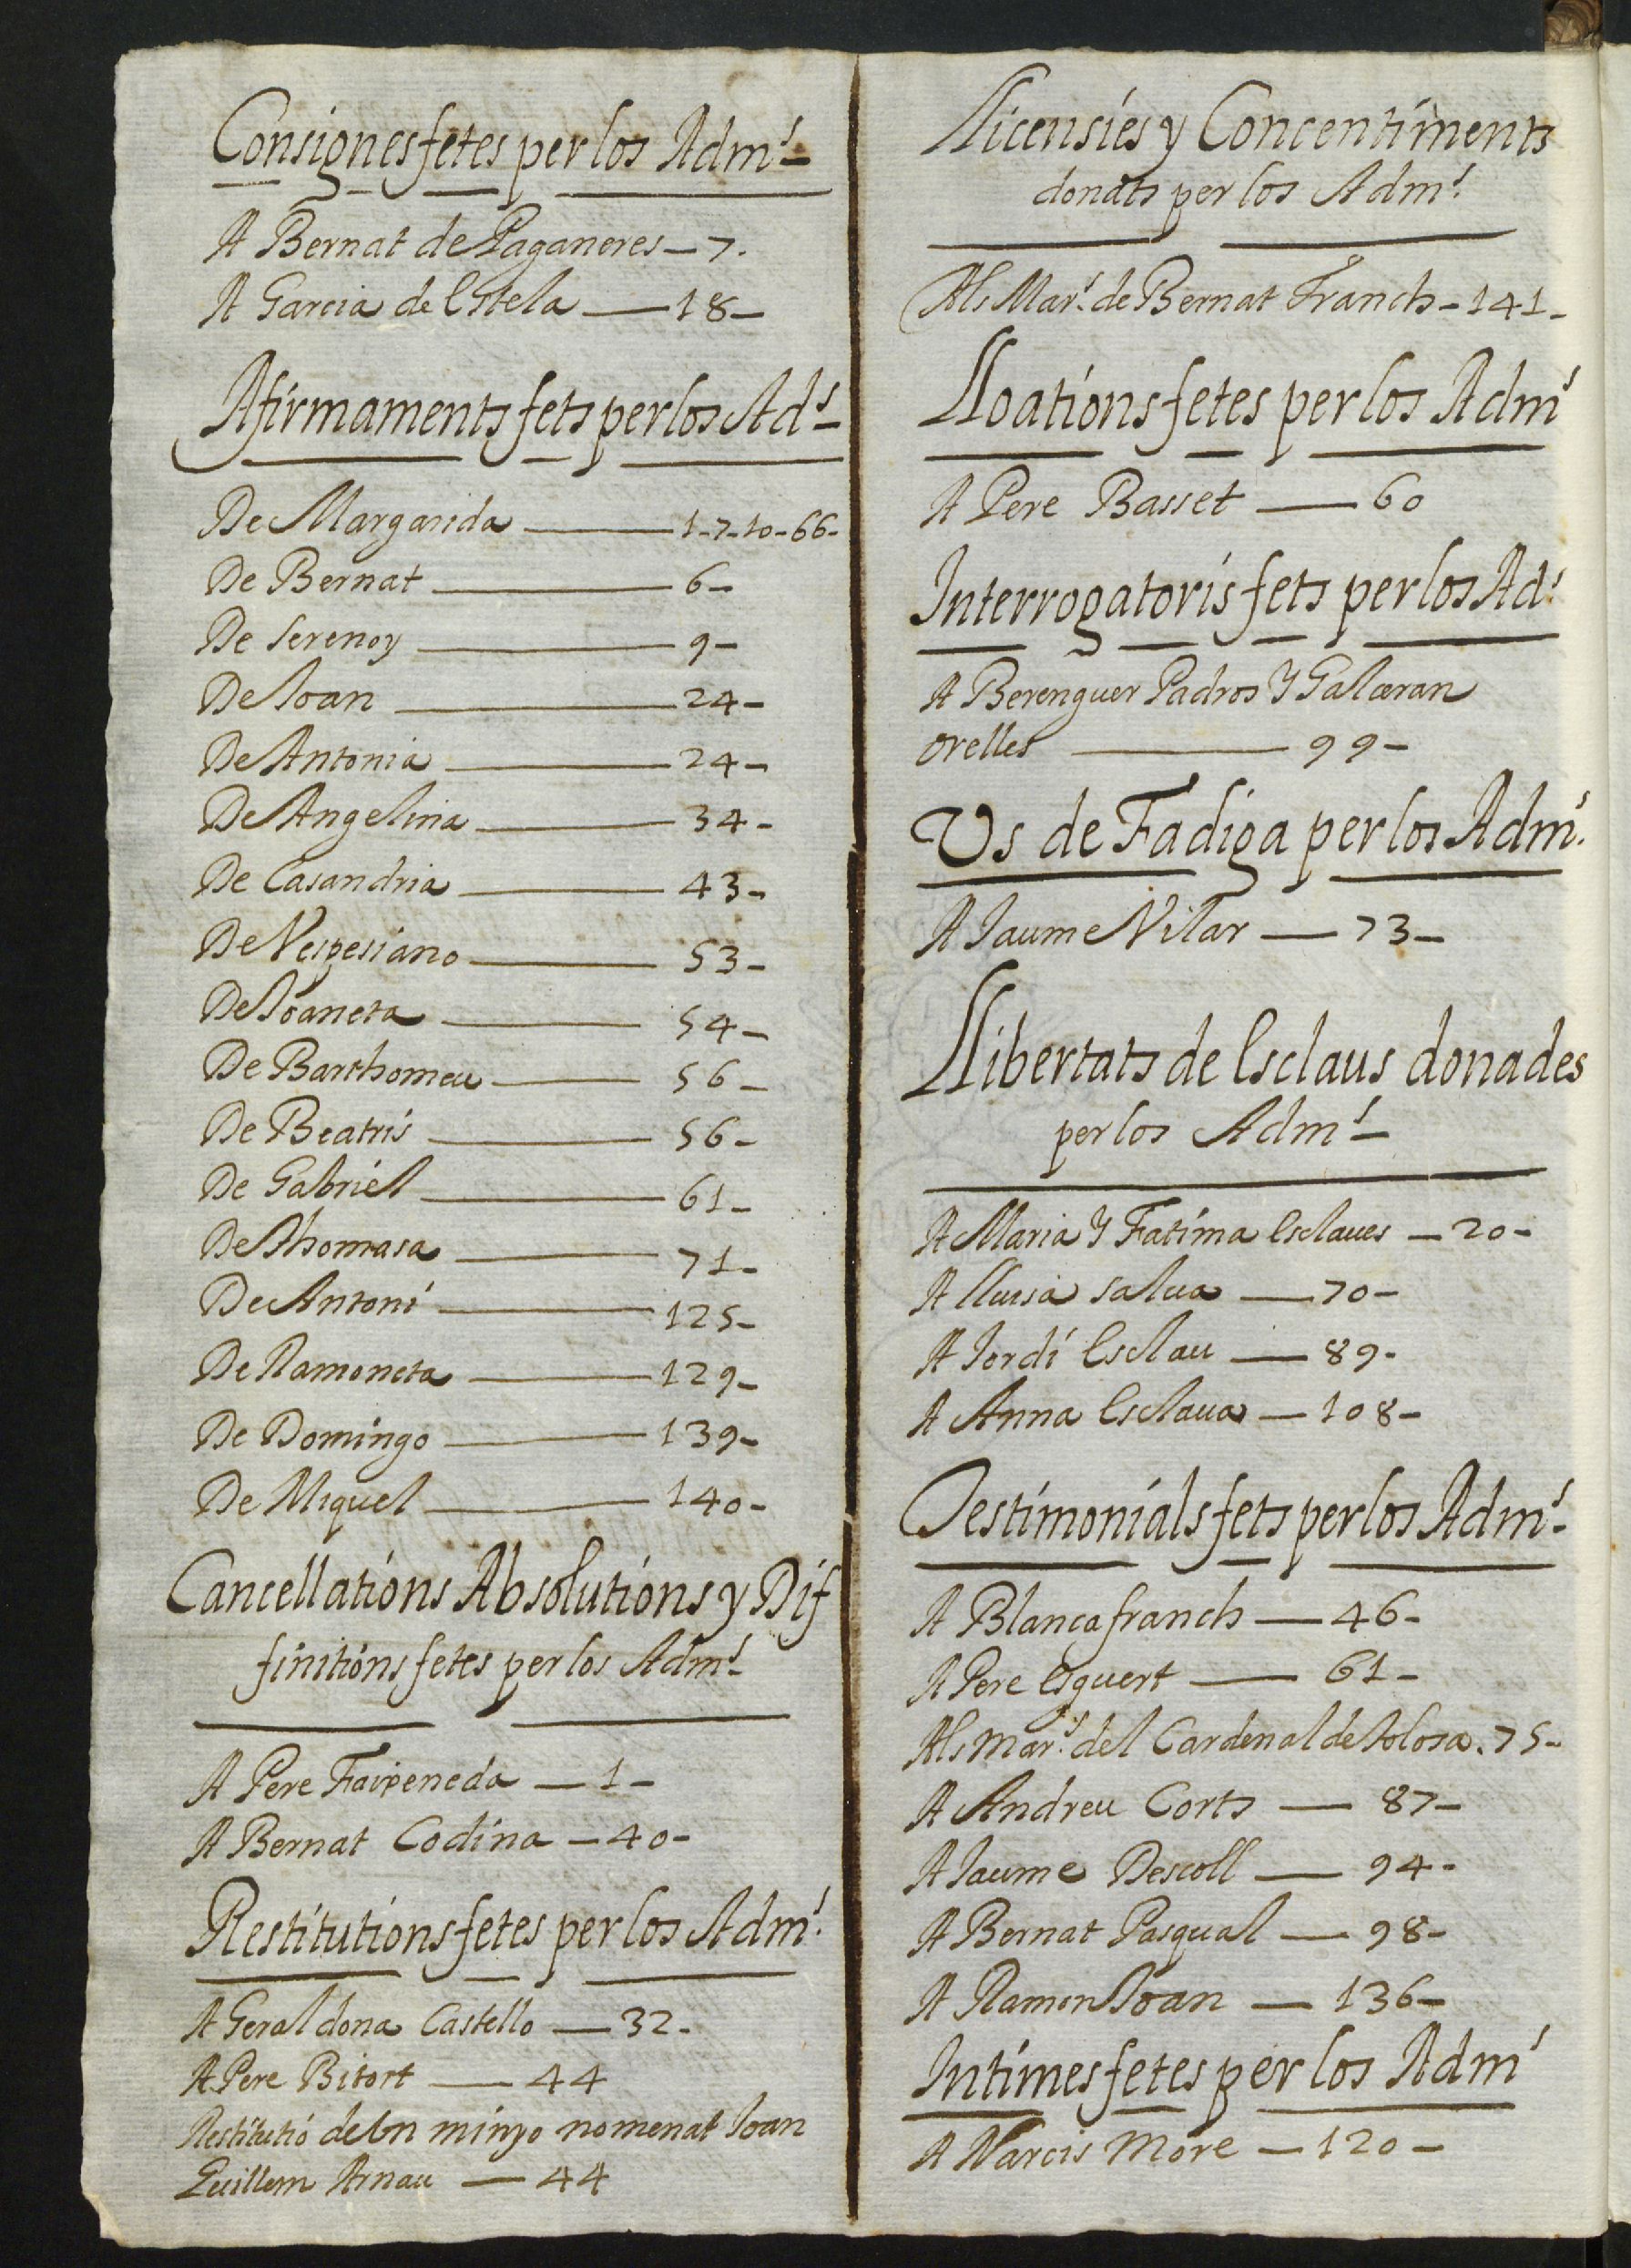 Consignes fetes per los Adm.s
A Bernat de Paganeres - 7.
A Garcia de Estela — 18 -
Afirmaments fets per los Ad.s
De Margarida — 1 - 7 - 10 - 66 -
De Bernat — 6 -
De Serenoy — 9 -
De Joan — 24 -
De Antonia — 24 -
De Angelina — 34 -
De Casandria — 43 -
De Vespesiano — 53 -
De Joaneta — 54 -
De Barthomeu — 56 -
De Beatris — 56 -
De Gabriel — 61 -
De Thomasa — 71 -
De Antoni — 125 -
De Ramoneta — 129 -
De Domingo — 139 -
De Miquel — 140 -
Cancellations Absolutions y Dif
finitions fetes per los Adm.s
A Pere — 1 -
A Bernat Codina - 40 -
Restitutions fetes per los Adm.s
A Geraldona Castello — 32 -
A Pere Bitort — 44
Restitutió de Un minyo nomenat Joan
Guillem Arnau — 44
Llicensies y Concentiments
donats per los Adm.s
Als Mar.s de Bernat Franch - 141 -
Lloations fetes per los Adm.s
A Pere Basset — 60
Interrogatoris fets per los Ad.s
A Berenguer Padros Y Galceran
orelles — 99 -
Us de Fadiga per los Adm.s
A Jaume Vilar — 73 -
Llibertats de Esclaus donades
per los Adm.s
A Maria Y Fatima Esclaues - 20 -
A Lluisa salua — 70 -
A Jordi Esclau — 89 -
A Anna Esclaua - 108 -
Testimonials fets per los Adm.s
A Blanca franch — 46 -
A Pere Esquert — 61 -
Als mar.s del Cardenal de Tolosa. 75 -
A Andreu Corts — 87 -
A Jaume Descoll — 94 -
A Bernat Pasqual — 98 -
A Ramon Joan — 136 -
Intimes fetes per los Adm.s
A Narcis More - 120 -